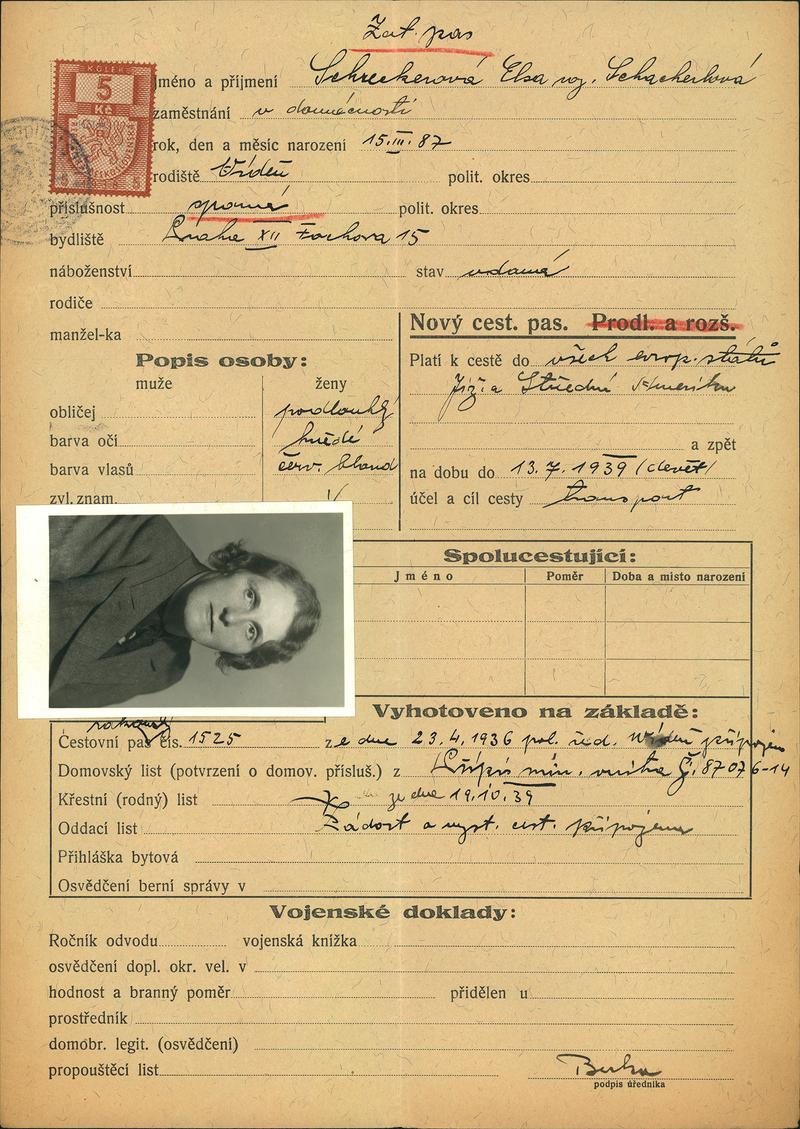 Zat. pas
KOLEK
5
Kč
Jméno a příjmení Schreckerová Elsa roz. Schacherlová
zaměstnání v domácnosti
rok, den a měsíc narození 15. III. 87
rodiště Vídeň polit. okres
příslušnost sporná polit. okres
bydliště Praha XII Fochova 15
náboženství stav vdaná
rodiče
manžel-ka
Nový cest. pas. Prodl. a rozš.
Popis osoby:
muže ženy
obličej podlouhlý
barva očí hnědé
barva vlasů červ. blond
zvl. znam.
Platí k cestě do všech evrop. států
Již. a Střední Ameriku
a zpět
na dobu do 13. 7. 1939 (devět)
účel a cíl cesty transport
Spolucestující:
Jméno Poměr Doba a místo narození
Vyhotoveno na základě:
rakouský
Cestovní pas čís. 1525 ze dne 23. 4. 1936 pol. řed. Vídeň připojen
Domovský list (potvrzení o domov. přísluš.) z min. vnitra Č. 87076-14
Křestní (rodný) list ze dne 19. 10. 39
Oddací list Žádost o vyst. cest. připojena
Přihláška bytová
Osvědčení berní správy v
Vojenské doklady:
Ročník odvodu vojenská knížka
osvědčení dopl. okr. vel. v
hodnost a branný poměr přidělen u
prostředník
domobr. legit. (osvědčení)
propouštěcí list
podpis úředníka